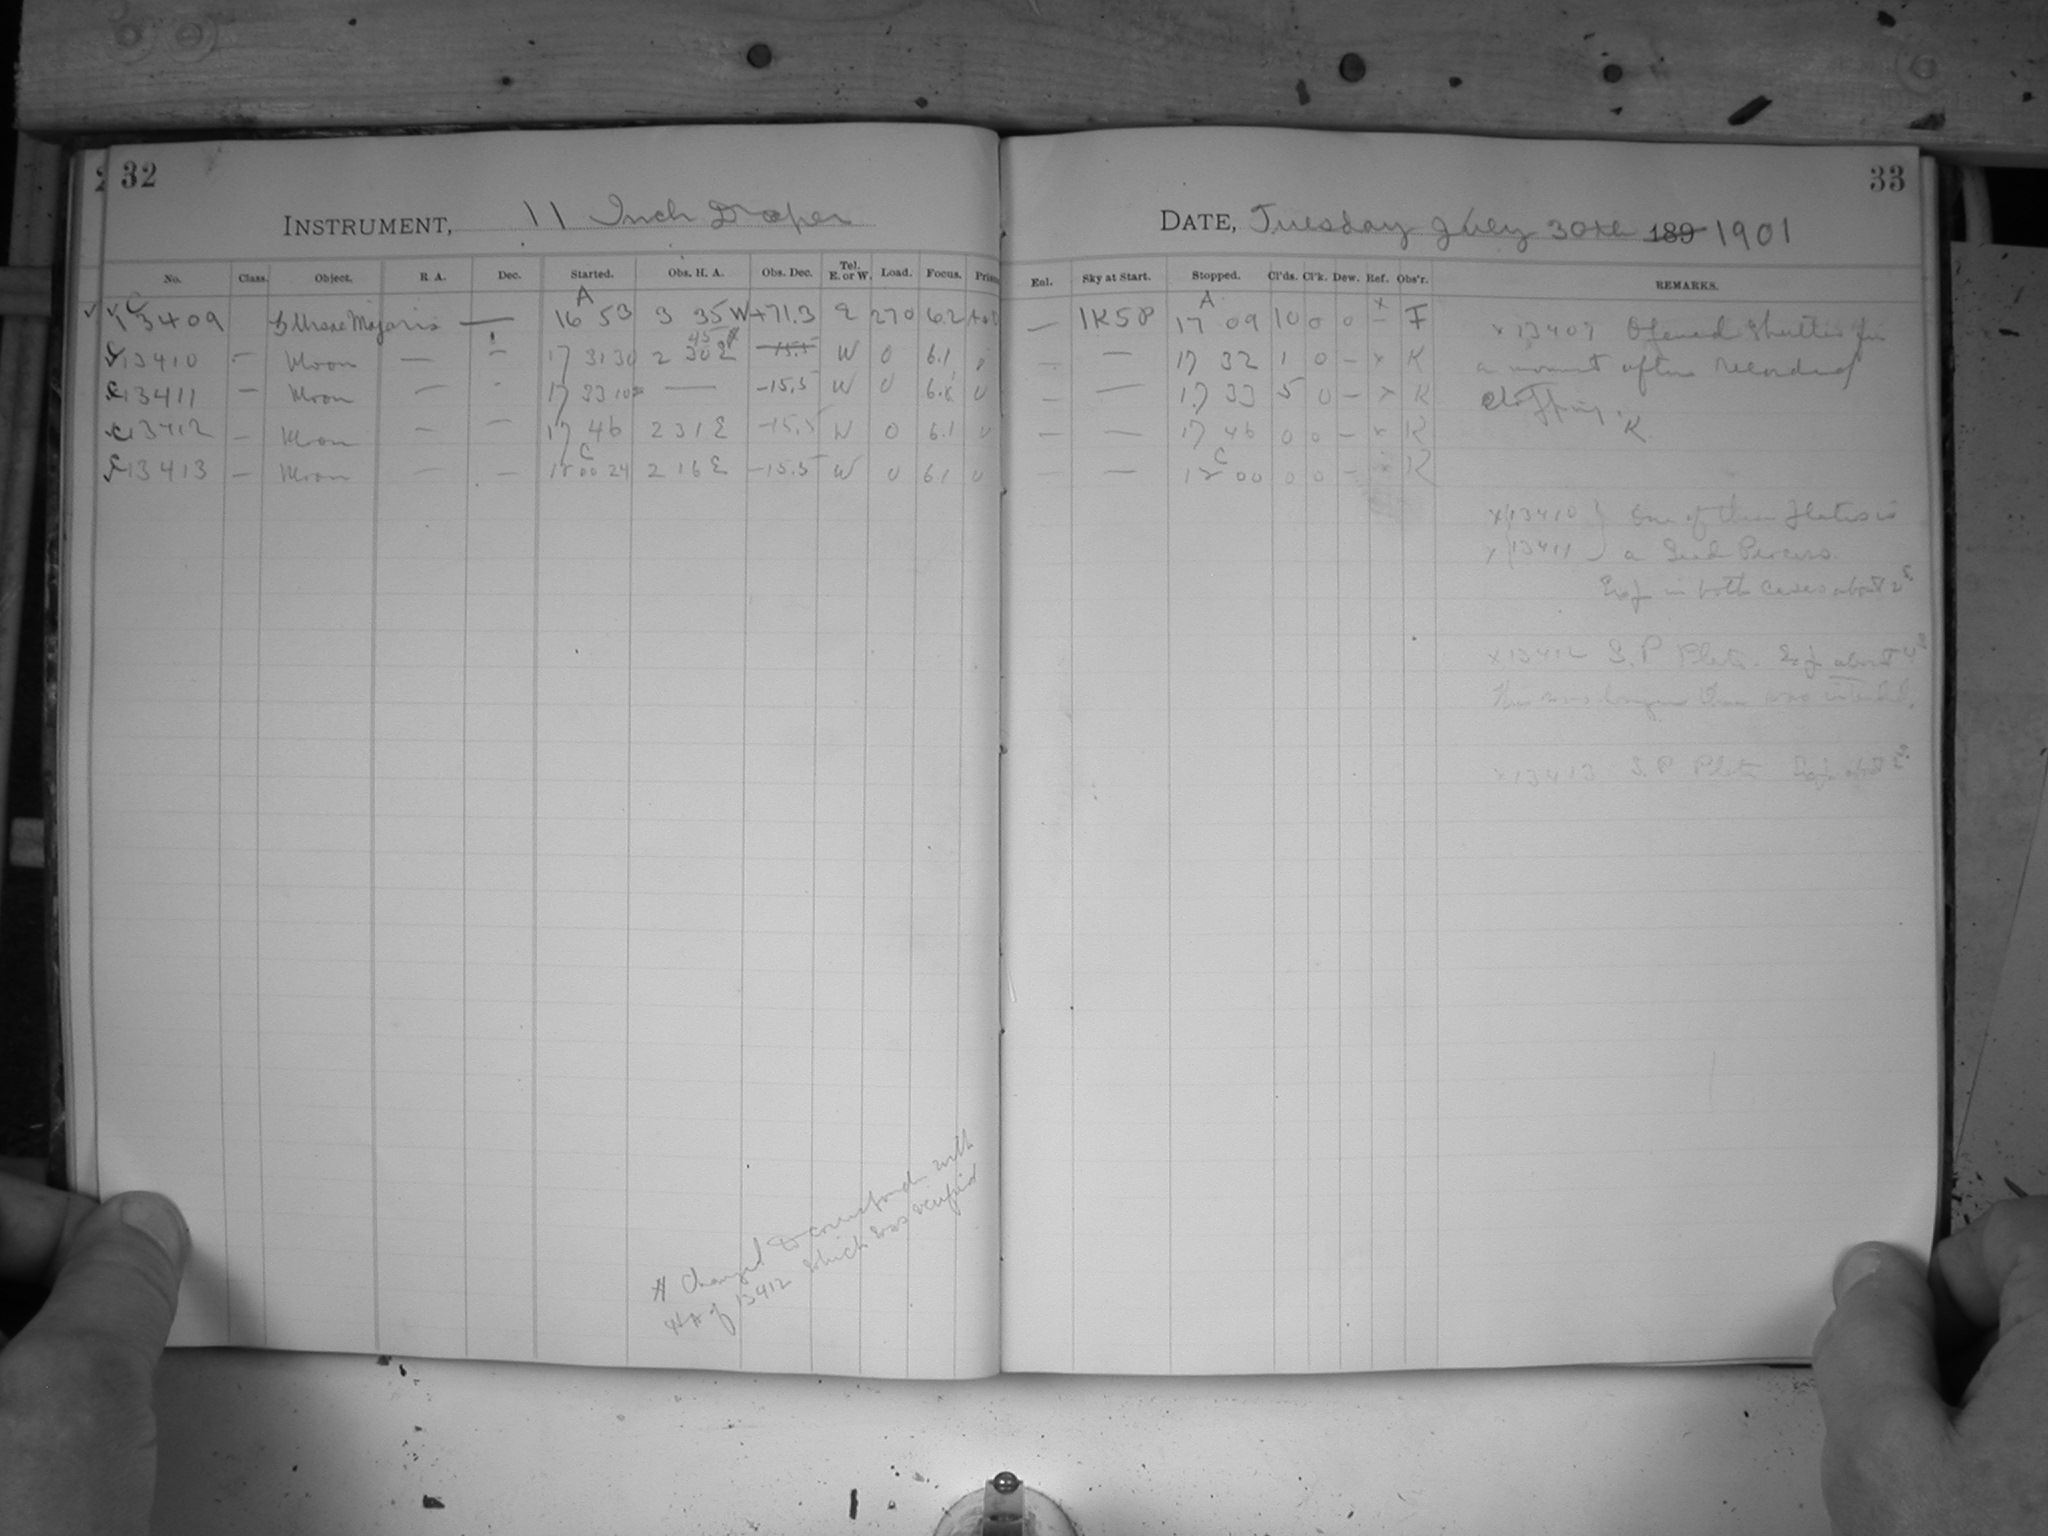 32
INSTRUMENT, 11 Inch Draper
No. Class. Object. R. A. Dec. Started. Obs. H. A. Obs. Dec. Tel. E. or W. Load. Focus. Prism
C A
13409 Ursae Majoris — 16 53 3 35 W +71.3 270 6.2
45
13410 — Moon — — 17 31 30 2 30 E —15.5 W 0 6.1
13411 — Moon — - 17 33 10 — -15.5 W 0 0
13412 — Moon — — 17 46 2 31 E -15.5 W 0 6.1 0
C
13413 — Moon — — 18 00 24 2 16 E -15.5 W 0 6.1 0
# Changed to correspond with
HA of 13412 which was verified
33
DATE, Tuesday July 30th 189 1901
Eol. Sky at Start. Stopped. Cl'ds. Cl'k. Dew. Ref. Obs'r. REMARKS.
A x
— 1K5P 17 09 10 0 0 – F
— — 17 32 1 0 — x K
— — 17 33 5 0 — x K
— — 17 46 0 0 — x K
C
— — 18 00 0 0 — x K
x 13409 Opened Shutter for
a moment after recorded
stopping. K
x 13410 } One of these plates is
x 13411 } a Seed Process.
Exp in both cases about 2s
x 13412 S. P Plate. Exp about 4s
This was longer than was intended.
x 13413 S. P Plate Exp about 2s